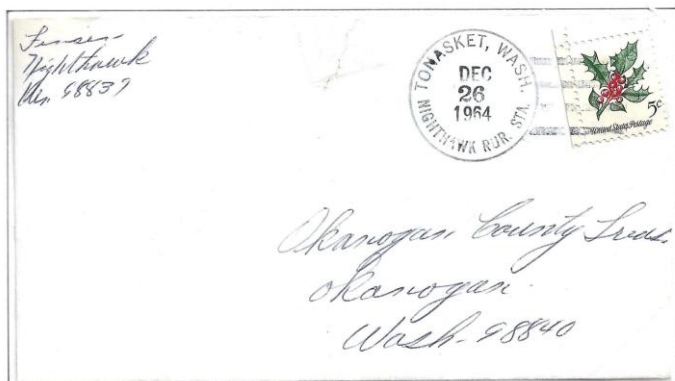 Nighthawk
98837
TONASKET, WASH.
DEC
26
1964
NIGHTHAWK RUR. STA.
5c
United States Postage
Okanogan County Treas.
Okanogan
Wash. 98840